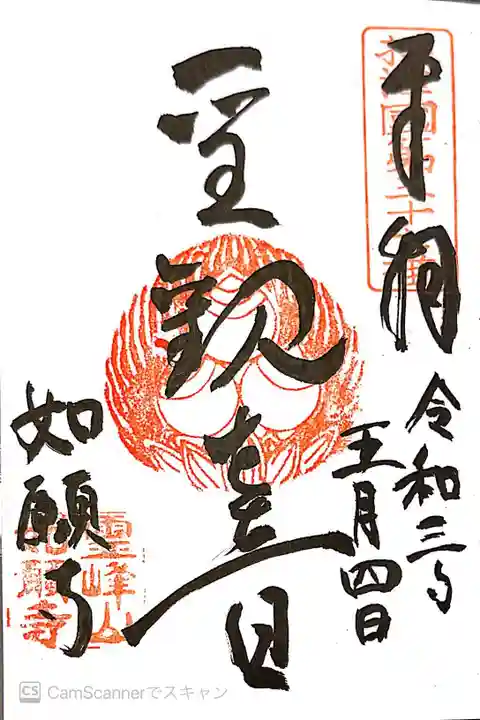 奉拝
令和三年
五月四日
聖観世音
如願寺
霊峰山
如願寺
CS CamScannerでスキャン